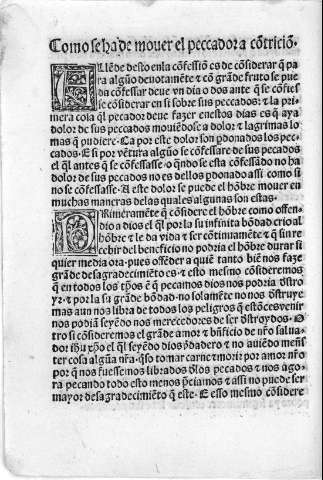 Como se ha de mouer el peccador a cõtriciõ.
Allẽde desto enla cõfessiõ es de cõsiderar q̃ pa
ra algũo deuotamẽte & cõ grãde fruto se pue
da cõfessar deue vn dia o dos ante q̃ se cõfies
se cõsiderar en si sobre sus peccados: & la pri
mera cosa q̃l pecador deue fazer enestos dias es q̃ aya
dolor de sus pecados mouiẽdose a dolor & lagrimas lo
mas q̃ pudiere. Ca por este dolor son pdonados los pec
cados. E si por vẽtura algũo se cõfessare de sus pecados
el q̃l antes q̃ se cõfessasse o qñdo se esta cõfessãdo no ha
dolor de sus pecados no es dellos pdonado assi como si
no se cõfessasse. A este dolor se puede el hõbre mouer en
muchas maneras delas quales algunas son estas.
PRimeramẽte q̃ considere el hõbre como offen
dio a dios el q̃l por la su infinita bõdad crio al
hõbre & le da vida & ser cõtinuamẽte & q̃ sin re
cebir del beneficio no podria el hõbre durar si
quier media ora. pues offẽder a quiẽ tanto biẽ nos faze
grãde desagradecimiẽto es. & esto mesmo cõsideremos
q̃ en todos los tp̃os ẽ q̃ pecamos dios nos podria d̃stro
yr. & por la su grãde bõdad no solamẽte no nos d̃struye
mas aun nos libra de todos los peligros q̃ estã cõ es venir
nos podiã seyẽdo nos merecedores de ser d̃stroydos. O
tro si cõsideremos el grãde amor & bñficio de nr̃o salua
dor ihũ xp̃o el q̃l seyẽdo dios v̑dadero & no auiẽdo meñs
ter cosa algũa nr̃a. q̃so tomar carne & morir por amor nr̃o
por q̃ nos fuessemos librados d̃los pecados & nos agora
pecando todo esto menos p̃ciamos & assi no puede ser
mayor desagradecimiẽto q̃ este. E esso mesmo cõsidere